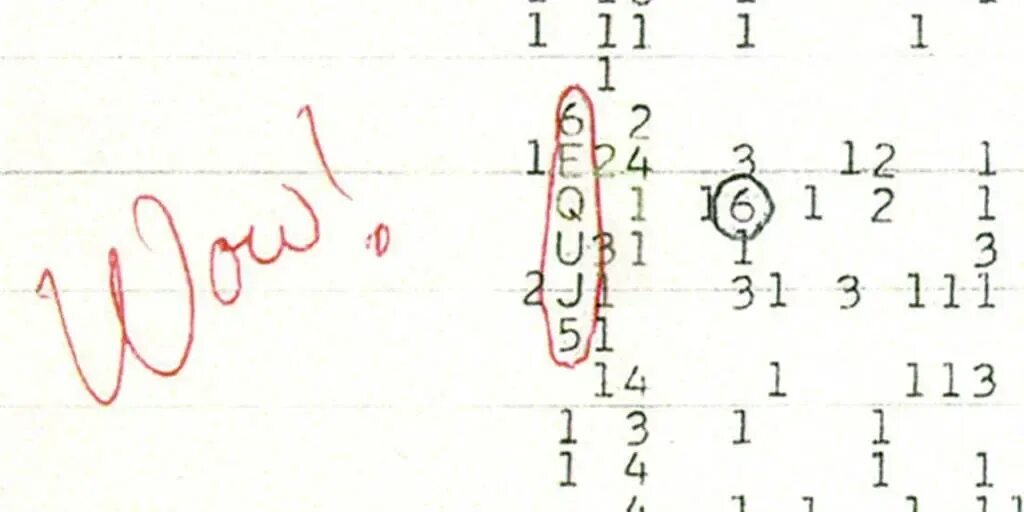 Wow!
1 11 1 1
1
6 2
1E24 3 12 1
Q 1 16 1 2 1
U31 1 3
2J1 31 3 111
51
14 1 113
1 3 1 1
1 4 1 1
4 1 1 1 11